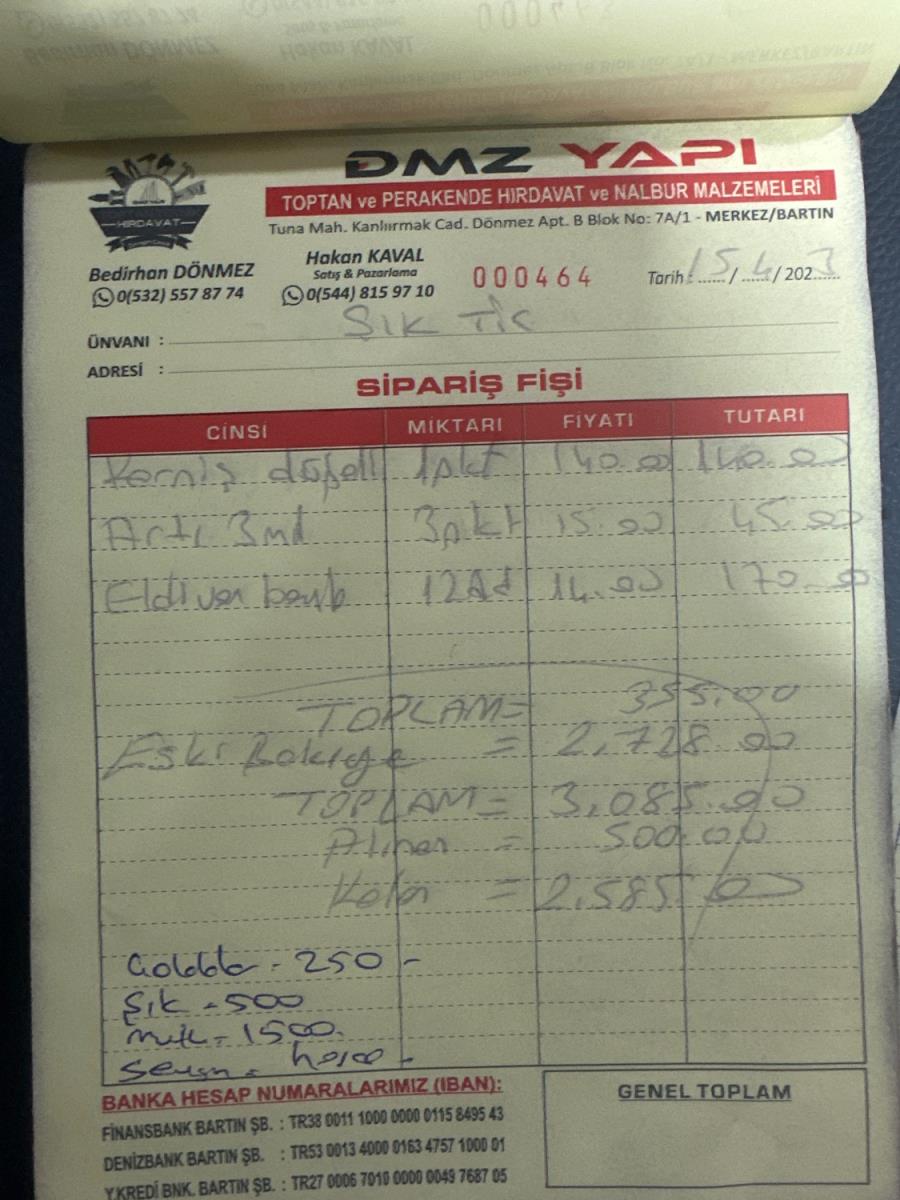 DMZ YAPI
TOPTAN ve PERAKENDE HIRDAVAT ve NALBUR MALZEMELERİ
Tuna Mah. Kanlıırmak Cad. Dönmez Apt. B Blok No: 7A/1 - MERKEZ/BARTIN
HIRDAVAT
Bedirhan DÖNMEZ
0(532) 557 87 74
Hakan KAVAL
Satış & Pazarlama
0(544) 815 97 10
000464
Tarih : 15/4/2023
ÜNVANI : ŞIK TİC
ADRESİ :
SİPARİŞ FİŞİ
CİNSİ MİKTARI FİYATI TUTARI
Korniş 1pkt 140.00 140.00
Artı 3md 3pkt 15.00 45.00
Eldiven 12Ad 14.00 170.00
TOPLAM= 355.00
Eski Bakiye = 2,728.00
TOPLAM= 3,085.00
Alınan = 500.00
Kalan = 2.585.00
250 -
Şık - 500
1500.
BANKA HESAP NUMARALARIMIZ (IBAN):
FİNANSBANK BARTIN ŞB. : TR38 0011 1000 0000 0115 8495 43
DENİZBANK BARTIN ŞB. : TR53 0013 4000 0163 4757 1000 01
Y.KREDİ BNK. BARTIN ŞB. : TR27 0006 7010 0000 0049 7687 05
GENEL TOPLAM